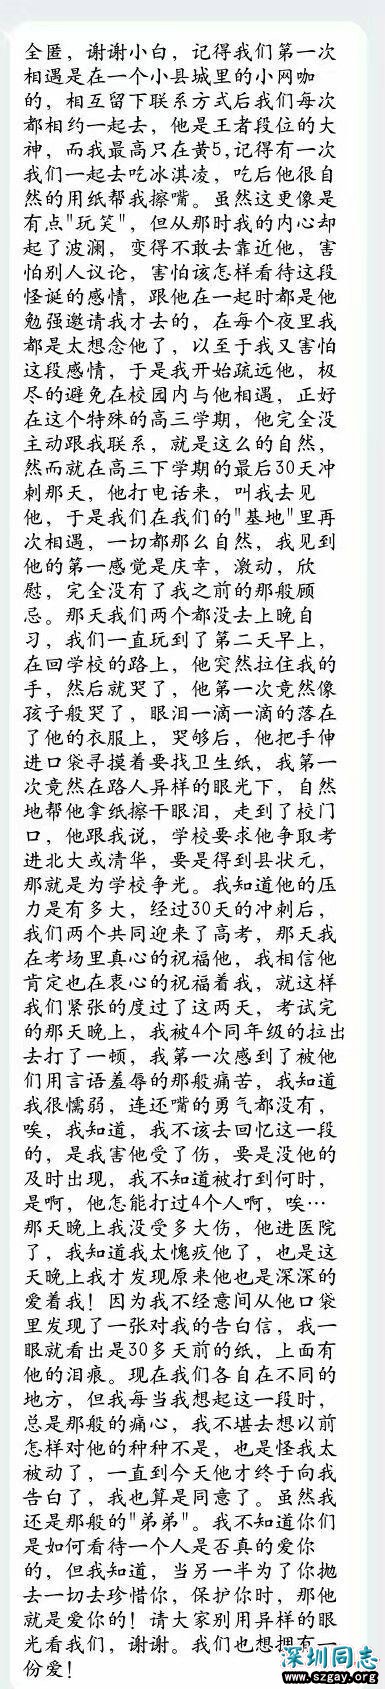 全匿，谢谢小白，记得我们第一次
相遇是在一个小县城里的小网咖
的，相互留下联系方式后我们每次
都相约一起去，他是王者段位的大
神，而我最高只在黄5,记得有一次
我们一起去吃冰淇凌，吃后他很自
然的用纸帮我擦嘴。虽然这更像是
有点"玩笑"，但从那时我的内心却
起了波澜，变得不敢去靠近他，害
怕别人议论，害怕该怎样看待这段
怪诞的感情，跟他在一起时都是他
勉强邀请我才去的，在每个夜里我
都是太想念他了，以至于我又害怕
这段感情，于是我开始疏远他，极
尽的避免在校园内与他相遇，正好
在这个特殊的高三学期，他完全没
主动跟我联系，就是这么的自然，
然而就在高三下学期的最后30天冲
刺那天，他打电话来，叫我去见
他，于是我们在我们的"基地"里再
次相遇，一切都那么自然，我见到
他的第一感觉是庆幸，激动，欣
慰，完全没有了我之前的那般顾
忌。那天我们两个都没去上晚自
习，我们一直玩到了第二天早上，
在回学校的路上，他突然拉住我的
手，然后就哭了，他第一次竟然像
孩子般哭了，眼泪一滴一滴的落在
了他的衣服上，哭够后，他把手伸
进口袋寻摸着要找卫生纸，我第一
次竟然在路人异样的眼光下，自然
地帮他拿纸擦干眼泪，走到了校门
口，他跟我说，学校要求他争取考
进北大或清华，要是得到县状元，
那就是为学校争光。我知道他的压
力是有多大，经过30天的冲刺后，
我们两个共同迎来了高考，那天我
在考场里真心的祝福他，我相信他
肯定也在衷心的祝福着我，就这样
我们紧张的度过了这两天，考试完
的那天晚上，我被4个同年级的拉出
去打了一顿，我第一次感到了被他
们用言语羞辱的那般痛苦，我知道
我很懦弱，连还嘴的勇气都没有，
唉，我知道，我不该去回忆这一段
的，是我害他受了伤，要是没他的
及时出现，我不知道被打到何时，
是啊，他怎能打过4个人啊，唉…
那天晚上我没受多大伤，他进医院
了，我知道我太愧疚他了，也是这
天晚上我才发现原来他也是深深的
爱着我！因为我不经意间从他口袋
里发现了一张对我的告白信，我一
眼就看出是30多天前的纸，上面有
他的泪痕。现在我们各自在不同的
地方，但我每当我想起这一段时，
总是那般的痛心，我不堪去想以前
怎样对他的种种不是，也是怪我太
被动了，一直到今天他才终于向我
告白了，我也算是同意了。虽然我
还是那般的"弟弟"。我不知道你们
是如何看待一个人是否真的爱你
的，但我知道，当另一半为了你抛
去一切去珍惜你，保护你时，那他
就是爱你的！请大家别用异样的眼
光看我们，谢谢。我们也想拥有一
份爱！
深圳同志
www.szgay.org